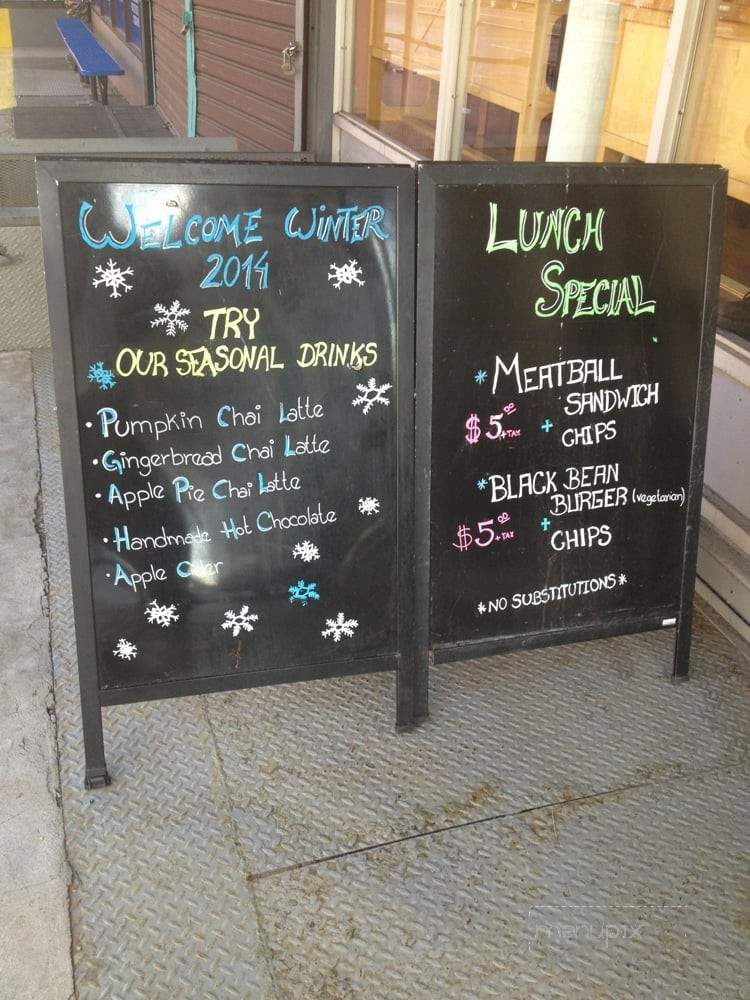 WELCOME WINTER
2014
TRY
OUR SEASONAL DRINKS
• Pumpkin Chai Latte
• Gingerbread Chai Latte
• Apple Pie Chai Latte
• Handmade Hot Chocolate
• Apple Cider
LUNCH
SPECIAL
* MEATBALL
SANDWICH
$5.00 +TAX + CHIPS
* BLACK BEAN
BURGER (vegetarian)
$5.00 +TAX + CHIPS
* NO SUBSTITUTIONS *
menupix